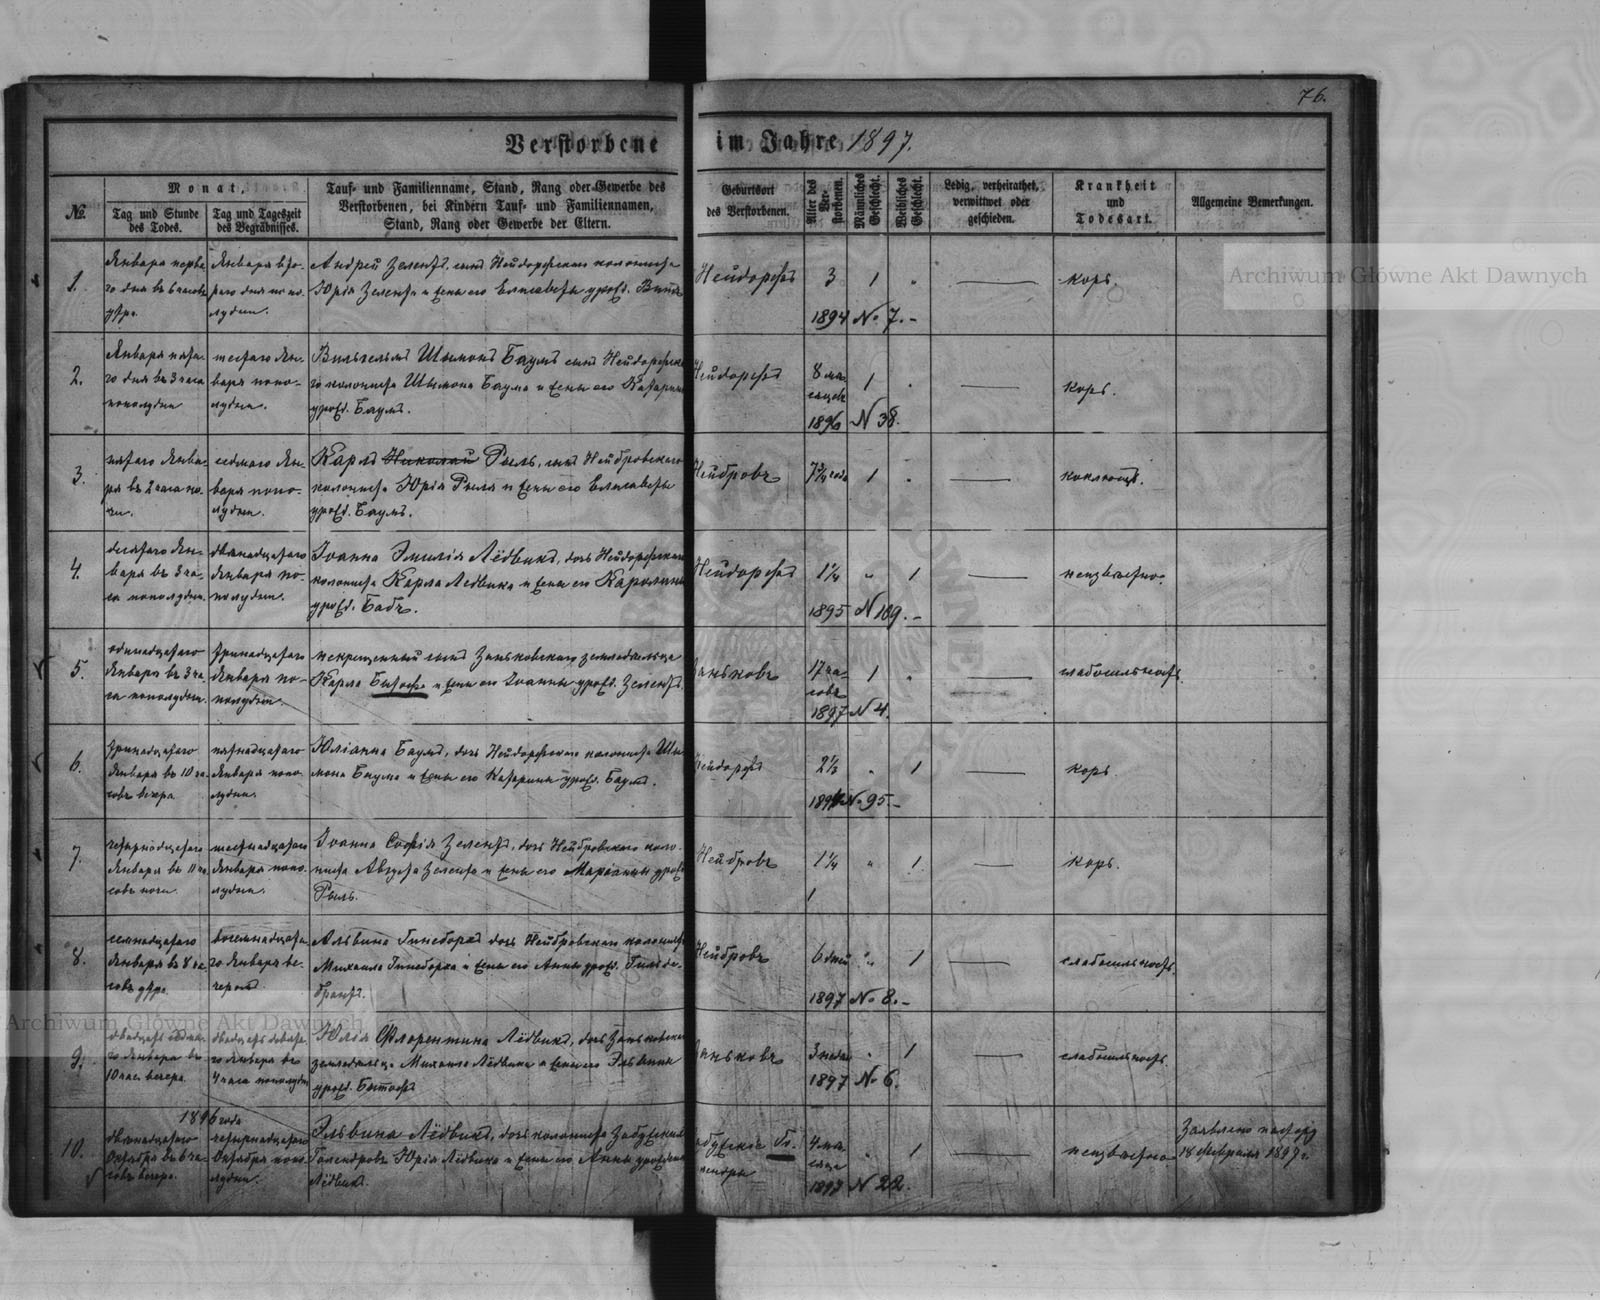 76.
Verstorbene im Jahre 1897.
№
Monat,
Tag und Stunde des Todes.
Tag und Tageszeit des Begräbnisses.
Tauf- und Familienname, Stand, Rang oder Gewerbe des
Verstorbenen, bei Kindern Tauf- und Familiennamen,
Stand, Rang oder Gewerbe der Eltern.
Geburtsort
des Verstorbenen.
Alter des Verstorbenen.
Männliches Geschlecht.
Weibliches Geschlecht.
Ledig, verheirathet,
verwittwet oder
geschieden.
Krankheit
und
Todesart.
Allgemeine Bemerkungen.
1.
Января перва-
го дня въ 6 часовъ
утра.
Января вто-
раго дня попо-
лудни.
Андрей Зелентъ, сынъ Нейдорфскаго колониста
Юрія Зелента и жены его Елисаветы урожд.
Нейдорфъ
3
1
"
корь.
1894 № 7.-
2.
Января пята-
го дня въ 3 часа
пополудни
шестаго Ян-
варя попо-
лудни.
Вильгельмъ Шимонъ Баумъ сынъ Нейдорфска-
го колониста Шимона Баума и жены его Катарины
урожд. Баумъ.
Нейдорфъ
8 мѣ-
сяцевъ
1
"
корь.
1896 № 38.
3.
пятаго Янва-
ря въ 2 часа но-
чи.
седмаго Ян-
варя попо-
лудни.
Карлъ Николай Рыль, сынъ Нейбровскаго
колониста Юрія Рыля и жены его Елисаветы
урожд. Баумъ.
Нейбровъ
1
"
коклюшъ.
4.
десятаго Ян-
варя въ 3 ча-
са пополудни.
двѣнадцатаго
Января по-
полудни.
Іоанна Эмилія Лёдвихъ, дочь Нейдорфскаго
колониста Карла Ледвиха и жены его Каролины
урожд. Бабъ.
Нейдорфъ
1¼
"
1
неизвѣстно.
1895 № 109.-
5.
одинадцатаго
Января въ 3 ча-
са пополудни.
тринадцатаго
Января по-
полудни.
некрещенный сынъ Заньковскаго земледѣльца
Карла и жены его Іоанны урожд. Зелентъ.
Заньковъ
17 ча-
совъ
1
"
слабосильность.
1897 № 4.
6.
тринадцатаго
Января въ 10 ча-
совъ вечера
пятнадцатаго
Января попо-
лудни.
Юліанна Баумъ, дочь Нейдорфскаго колониста Ши-
мона Баума и жены его Катарины урожд. Баумъ.
Нейдорфъ
"
1
корь
№ 95.-
7.
четырнадцатаго
Января въ 11 ча-
совъ ночи.
шестнадцатаго
Января попо-
лудни.
Іоанна Софія Зелентъ, дочь Нейбровскаго коло-
ниста Августа Зелента и жены его Маріанны урожд.
Рыль.
Нейбровъ
1¼
"
1
корь.
8.
семнадцатаго
Января въ 8 ча-
совъ утра.
восемнадцата-
го Января ве-
черомъ
Альвина Гинсборхъ дочь Нейбровскаго колониста
Михаила Гинсборха и жены его Анны урожд. Гильде-
брантъ.
Нейбровъ
6 дней
"
1
слабосильность
1897 № 8.-
9.
го Января въ
10 час. вечера
го Января въ
4 часа пополудни
Юлія Флорентина Лёдвихъ, дочь Заньковскаго
земледѣльца Михаила Лёдвиха и жены его Эльвины
урожд.
Заньковъ
3 недѣли
"
1
слабосильность.
1897 № 6.
1896 года
10.
двѣнадцатаго
Октября въ 6 ча-
совъ вечера.
четырнадцатаго
Октября попо-
лудни.
Эльвина Лёдвихъ, дочь колониста Забужскихъ
Голендровъ Юрія Лёдвиха и жены его Анны урожденной
Лёдвихъ.
Забужскіе Го-
лендры
4 мѣ-
сяца
"
1
неизвѣстно
№ 22.
Заявлено пастору
18 Февраля 1897 г.
Archiwum Główne Akt Dawnych
Archiwum Główne Akt Dawnych